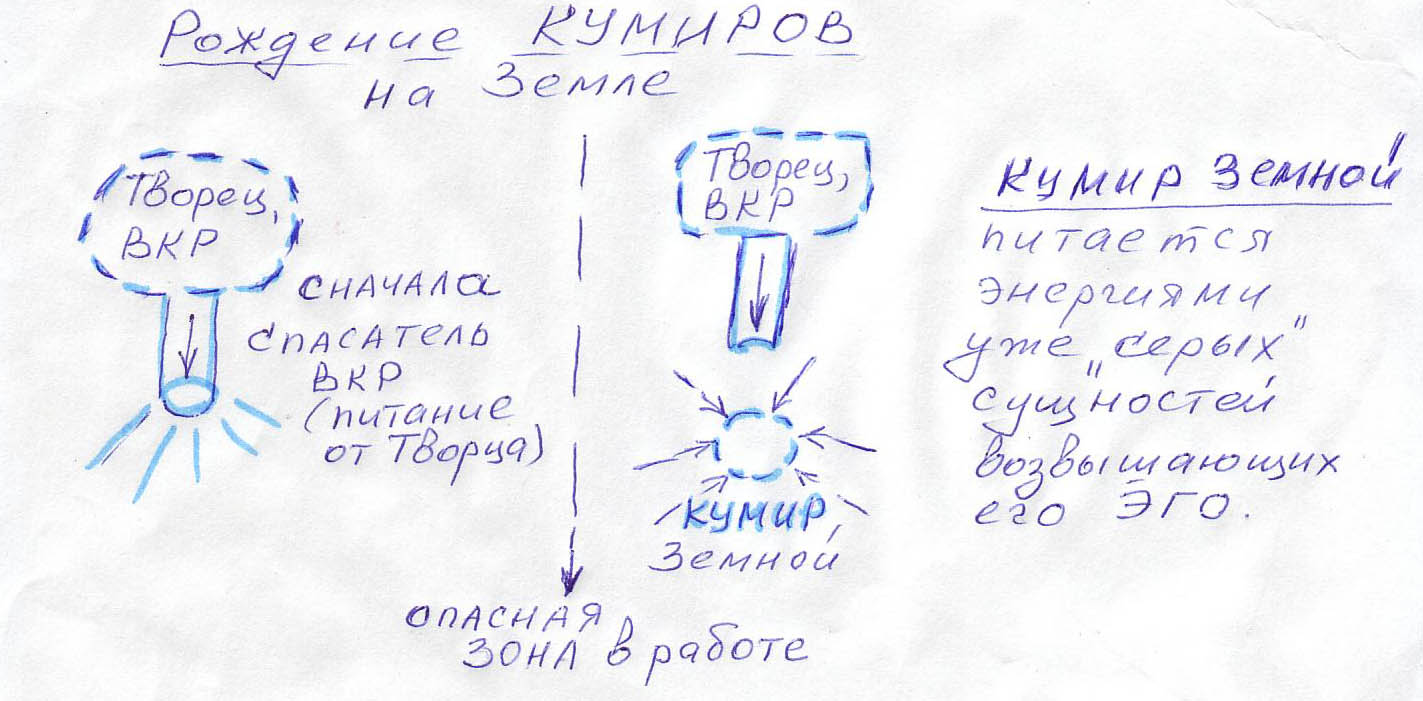 Рождение КУМИРОВ
на Земле
Творец,
ВКР
сначала
спасатель
ВКР
(питание
от Творца)
Творец,
ВКР
КУМИР,
Земной
Кумир Земной"
питается
энергиями
уже „серых"
сущ"ностей
возвышающих
его ЭГО.
ОПАСНАЯ
ЗОНА в работе